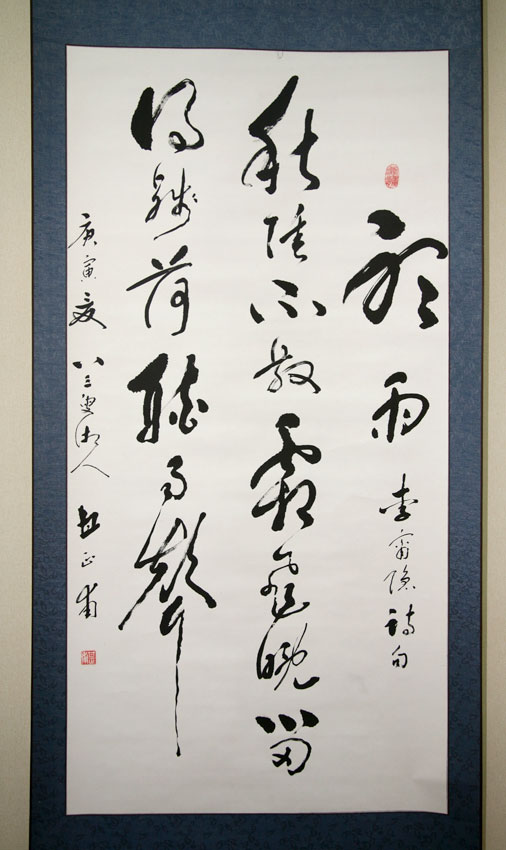 聽雨
李商隱詩句
秋陰不散霜飛晚留
得殘荷聽雨聲
庚寅夏 八三叟湘人 正甫